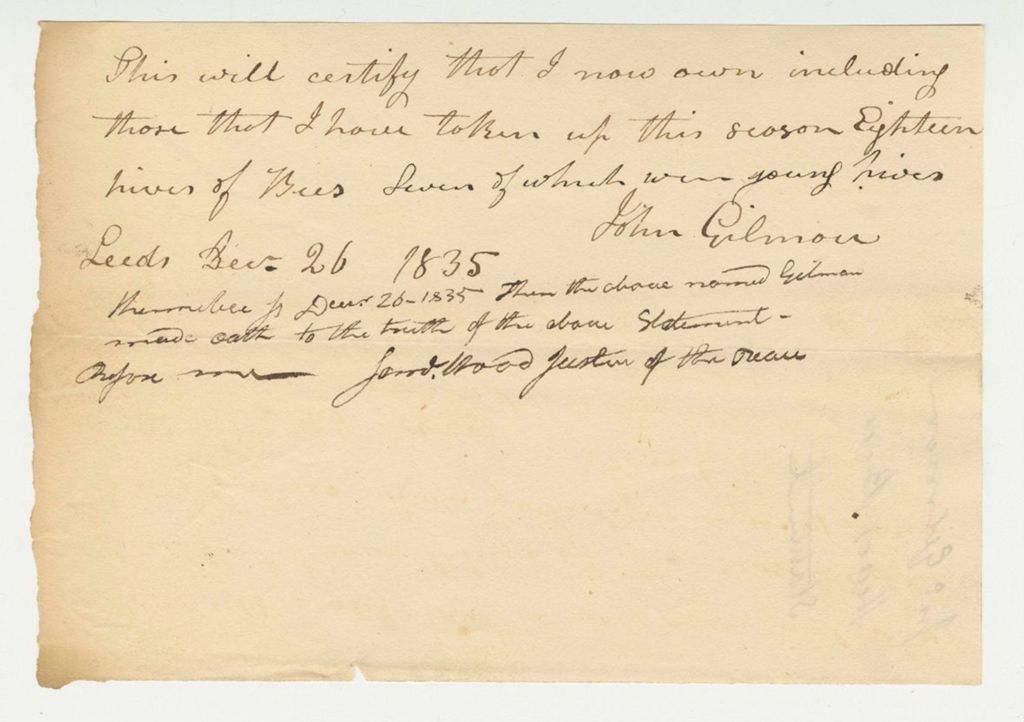 This will certify that I now own including
those that I have taken up this season Eighteen
hives of Bees Seven of which were young hives
John Gilmore
Leeds Decr 26 1835
Kennebec ss Decr 26-1835 Then the above named Gilman
made oath to the truth of the above Statement-
Before me Saml. Wood Justice of the Peace